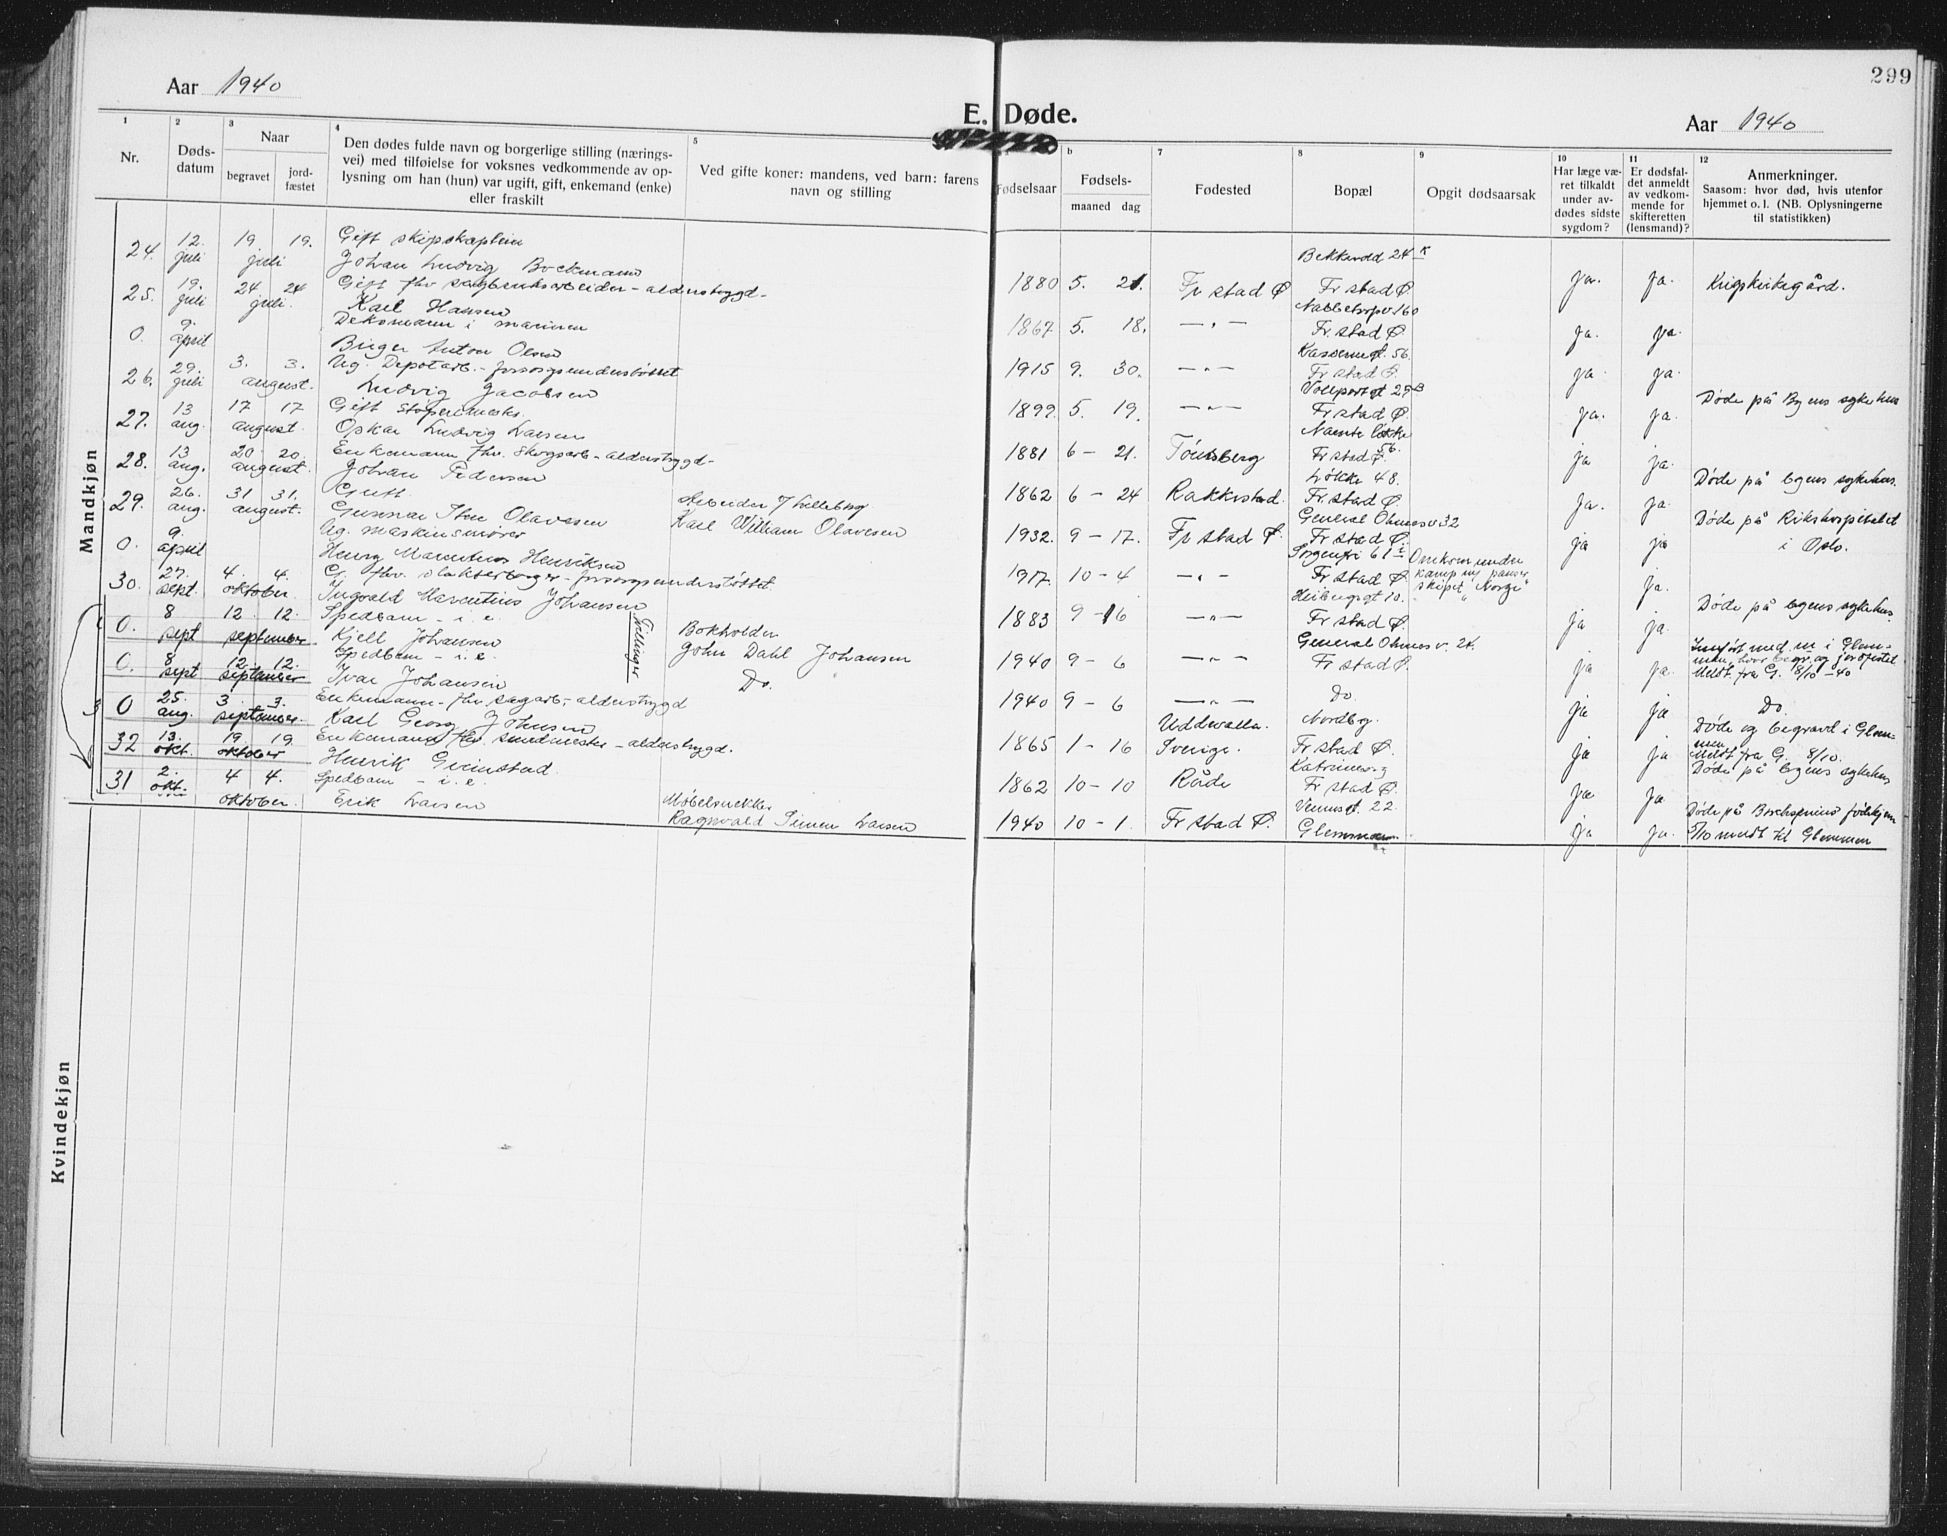 299
Aar 1940
E. Døde.
Aar 1940
1
Nr.
2
Døds-
datum
3
Naar
begravet
jord-
fæstet
4
Den dødes fulde navn og borgerlige stilling (nærings-
vei) med tilføielse for voksnes vedkommende av op-
lysning om han (hun) var ugift, gift, enkemand (enke)
eller fraskilt
5
Ved gifte koner: mandens, ved barn: farens
navn og stilling
Fødselsaar
b
Fødsels-
maaned dag
7
Fødested
8
Bopæl
9
Opgit dødsaarsak
10
Har læge væ-
ret tilkaldt
under av-
dødes sidste
sygdom?
11
Er dødsfal-
det anmeldt
av vedkom-
mende for
skifteretten
(lensmand)?
12
Anmerkninger.
Saasom: hvor død, hvis utenfor
hjemmet o. l. (NB. Oplysningerne
til statistikken)
Mandkjøn
24. 12. juli 19 19. juli Gift skipskaptein
Johan Ludvig Bockmann 1880 5. 21. Fr stad Ø Bekkevold 24 Fr stad Ø ja. ja. Krigskirkegård.
25. 19. juli 24 24 juli. Gift fhv sagbruksarbeider - alderstrygd-
Karl Hansen 1867 5. 18. — „ — Nabbetorpv 160 Fr. stad Ø ja. ja.
0. 9. april Deksmann i marinen
Birger Anton Olsen 1915 9. 30. — „ — Kasernegt. 56. Fr stad Ø. ja. ja.
26. 29. juli 3. 3. august. Ug. Depotarb. - forsorgsunderstøttet
Ludvig Jacobsen 1899 5. 19. — „ — Vollportgt 25 B Fr. stad Ø ja. ja. Døde på Byens sykehus
27. 13 aug. 17 17 august. Gift
Oskar Ludvig Larsen 1881 6 - 21. Tönsberg løkke 56. Fr stad Ø ja ja.
28. 13 aug. 20 20. august. Enkemann fhv. Skogsarb - alderstrygd-
Johan Pedersen 1862 6 - 24 Rakkestad. Løkke 48. Fr. stad Ø ja. ja. Døde på byens sykehus.
29. 26. aug. 31 31. august. Gutt.
Gunnar Olavesen Arbeider
Karl William Olavesen 1932. 9 - 17. Fr stad Ø. General Ohmes v 32 Fr stad Ø. ja ja Døde på Rikshospitalet
i Oslo.
0. 9. april Ug. maskinsmører
Henry Marentius Henriksen 1917 10 - 4 — „ — Sorgenfri 61 Fr stad Ø. Omkom under
kamp m/ panser
skipet „Norge" ja.
30. 27. sept. 4. 4. oktober. G. fhv. slakterborger - forsorgsunderstøttet.
Ingvald Marentius Johansen 1883 9 - 16 — „ — Heibergsgt 10. Fr stad Ø ja ja. Døde på byens sykehus.
0. 8 sept 12. 12. september Spedbarn - i.e.
Kjell Johansen Tvillinger Bokholder
John Dahl Johansen 1940 9 - 6 — „ — General Ohmes v. 24. Fr stad Ø. ja ja. Innført med nr i Glem-
men, hvor begr. og jordfestet
Meldt fra G. 8/10 - 40
0. 8 sept 12. 12. september Spedbarn - i.e.
Ivar Johansen Do. 1940 9 - 6 — „ — Do ja ja Do.
0 25. aug. 3. 3. september. Enkemann - fhv. sagarb - alderstrygd
Karl Georg Johnsen 1865 1 - 16 Uddevalla. Sverige. Nordbg. Fr stad Ø. ja ja Døde og begravd i Glem-
men
Meldt fra G. 8/10.
32 13. okt. 19 19. oktober Enkemann fhv. smedmester - alderstrygd.
Henrik Grimstad. 1862 10 - 10 Råde Fr stad Ø. ja ja Døde på byens sykehus
31 2. okt. 4 4. oktober. Spedbarn - i.e.
Erik Larsen Møbelsnekker
Ragnvald Simen Larsen 1940 10 - 1. Fr stad Ø. Venusgt. 22. Glemmen ja ja. Døde på Borchsenius fødehjem
5/10 meldt til Glemmen
Kvindekjøn